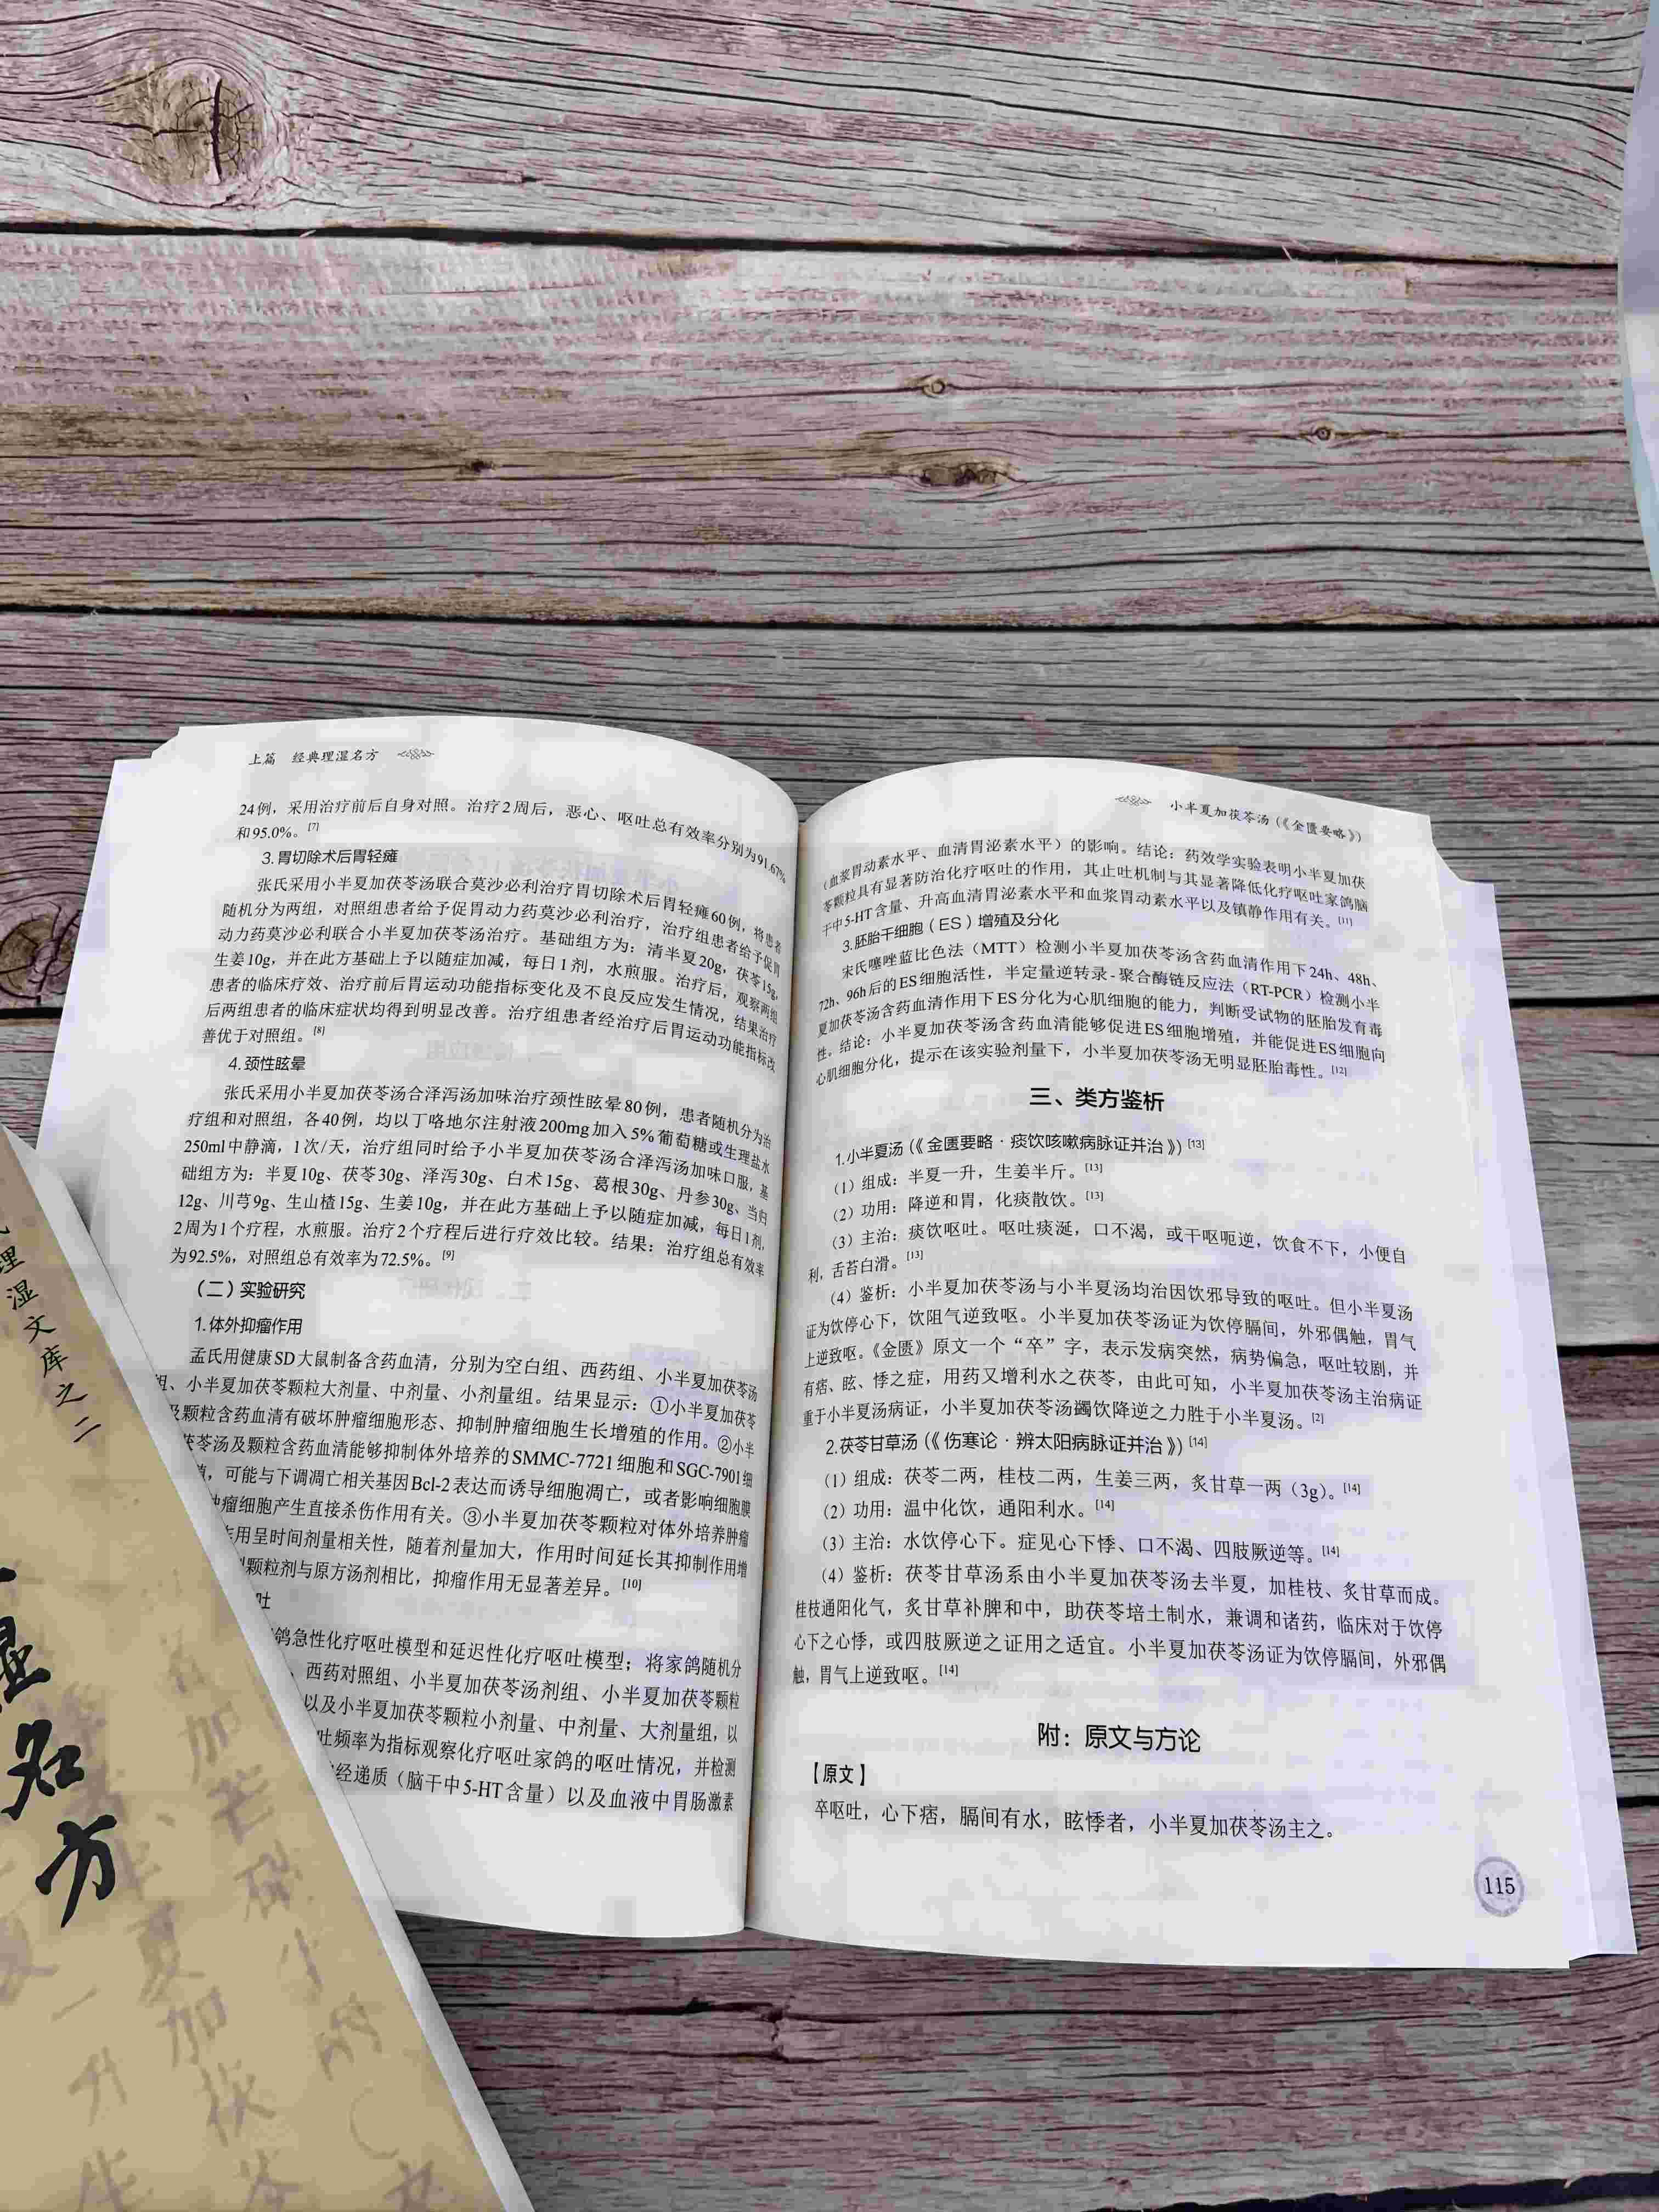 上篇 经典理湿名方
24例，采用治疗前后自身对照。治疗2周后，恶心、呕吐总有效率分别为91.67%
和95.0%。[7]
3.胃切除术后胃轻瘫
张氏采用小半夏加茯苓汤联合莫沙必利治疗胃切除术后胃轻瘫60例，将患者
随机分为两组，对照组患者给予促胃动力药莫沙必利治疗，治疗组患者给予促胃
动力药莫沙必利联合小半夏加茯苓汤治疗。基础组方为：清半夏20g，茯苓15g，
生姜10g，并在此方基础上予以随症加减，每日1剂，水煎服。治疗后，观察两组
患者的临床疗效、治疗前后胃运动功能指标变化及不良反应发生情况，结果治疗
后两组患者的临床症状均得到明显改善。治疗组患者经治疗后胃运动功能指标改
善优于对照组。[8]
4.颈性眩晕
张氏采用小半夏加茯苓汤合泽泻汤加味治疗颈性眩晕80例，患者随机分为治
疗组和对照组，各40例，均以丁咯地尔注射液200mg加入5%葡萄糖或生理盐水
250ml中静滴，1次/天，治疗组同时给予小半夏加茯苓汤合泽泻汤加味口服，基
础组方为：半夏10g、茯苓30g、泽泻30g、白术15g、葛根30g、丹参30g、当归
12g、川芎9g、生山楂15g、生姜10g，并在此方基础上予以随症加减，每日1剂，
2周为1个疗程，水煎服。治疗2个疗程后进行疗效比较。结果：治疗组总有效率
为92.5%，对照组总有效率为72.5%。[9]
（二）实验研究
1.体外抑瘤作用
孟氏用健康SD大鼠制备含药血清，分别为空白组、西药组、小半夏加茯苓汤
组、小半夏加茯苓颗粒大剂量、中剂量、小剂量组。结果显示：①小半夏加茯苓
及颗粒含药血清有破坏肿瘤细胞形态、抑制肿瘤细胞生长增殖的作用。②小半
茯苓汤及颗粒含药血清能够抑制体外培养的SMMC-7721细胞和SGC-7901细
，可能与下调凋亡相关基因Bcl-2表达而诱导细胞凋亡，或者影响细胞膜
肿瘤细胞产生直接杀伤作用有关。③小半夏加茯苓颗粒对体外培养肿瘤
作用呈时间剂量相关性，随着剂量加大，作用时间延长其抑制作用增
颗粒剂与原方汤剂相比，抑瘤作用无显著差异。[10]
吐
鸽急性化疗呕吐模型和延迟性化疗呕吐模型；将家鸽随机分
、西药对照组、小半夏加茯苓汤剂组、小半夏加茯苓颗粒
以及小半夏加茯苓颗粒小剂量、中剂量、大剂量组，以
吐频率为指标观察化疗呕吐家鸽的呕吐情况，并检测
经递质（脑干中5-HT含量）以及血液中胃肠激素
小半夏加茯苓汤（《金匮要略》）
（血浆胃动素水平、血清胃泌素水平）的影响。结论：药效学实验表明小半夏加茯
苓颗粒具有显著防治化疗呕吐的作用，其止吐机制与其显著降低化疗呕吐家鸽脑
干中5-HT含量、升高血清胃泌素水平和血浆胃动素水平以及镇静作用有关。[11]
3.胚胎干细胞（ES）增殖及分化
宋氏噻唑蓝比色法（MTT）检测小半夏加茯苓汤含药血清作用下24h、48h、
72h、96h后的ES细胞活性，半定量逆转录-聚合酶链反应法（RT-PCR）检测小半
夏加茯苓汤含药血清作用下ES分化为心肌细胞的能力，判断受试物的胚胎发育毒
性。结论：小半夏加茯苓汤含药血清能够促进ES细胞增殖，并能促进ES细胞向
心肌细胞分化，提示在该实验剂量下，小半夏加茯苓汤无明显胚胎毒性。[12]
三、类方鉴析
1.小半夏汤（《金匮要略·痰饮咳嗽病脉证并治》）[13]
（1）组成：半夏一升，生姜半斤。[13]
（2）功用：降逆和胃，化痰散饮。[13]
（3）主治：痰饮呕吐。呕吐痰涎，口不渴，或干呕呃逆，饮食不下，小便自
利，舌苔白滑。[13]
（4）鉴析：小半夏加茯苓汤与小半夏汤均治因饮邪导致的呕吐。但小半夏汤
证为饮停心下，饮阻气逆致呕。小半夏加茯苓汤证为饮停膈间，外邪偶触，胃气
上逆致呕。《金匮》原文一个“卒”字，表示发病突然，病势偏急，呕吐较剧，并
有痞、眩、悸之症，用药又增利水之茯苓，由此可知，小半夏加茯苓汤主治病证
重于小半夏汤病证，小半夏加茯苓汤蠲饮降逆之力胜于小半夏汤。[2]
2.茯苓甘草汤（《伤寒论·辨太阳病脉证并治》）[14]
（1）组成：茯苓二两，桂枝二两，生姜三两，炙甘草一两（3g）。[14]
（2）功用：温中化饮，通阳利水。[14]
（3）主治：水饮停心下。症见心下悸、口不渴、四肢厥逆等。[14]
（4）鉴析：茯苓甘草汤系由小半夏加茯苓汤去半夏，加桂枝、炙甘草而成。
桂枝通阳化气，炙甘草补脾和中，助茯苓培土制水，兼调和诸药，临床对于饮停
心下之心悸，或四肢厥逆之证用之适宜。小半夏加茯苓汤证为饮停膈间，外邪偶
触，胃气上逆致呕。[14]
附：原文与方论
【原文】
卒呕吐，心下痞，膈间有水，眩悸者，小半夏加茯苓汤主之。
115
理湿文库之二
湿名方